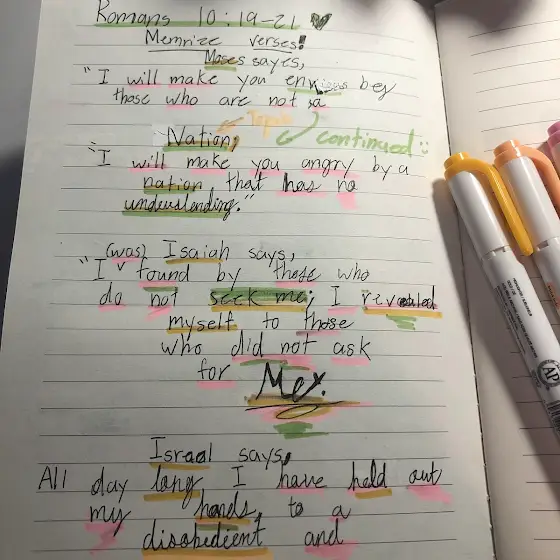 Romans 10:19-21
Memrize verses!
Moses sayes,
"I will make you envious bey
those who are not a
Nation; Topic continued
"I will make you angry by a
nation that has no
understending."
(was) Isaiah says,
"I found by those who
do not seek me; I revealed
myself to those
who did not ask
for Mey.
Israol says,
All day long I have hold out
my hands, to a
disobedient and